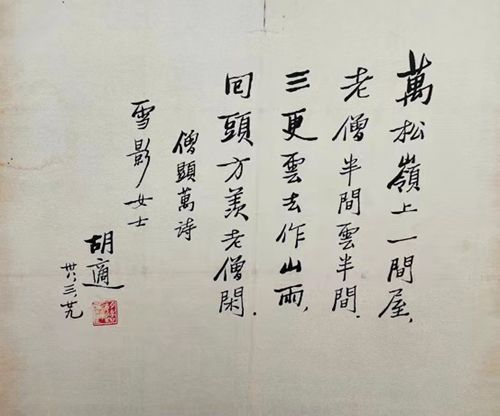 萬松嶺上一間屋，
老僧半間雲半間．
三更雲去作山雨，
回頭方羨老僧閑．
僧顯萬诗
雪影女士
胡適
卅八．三．廿九